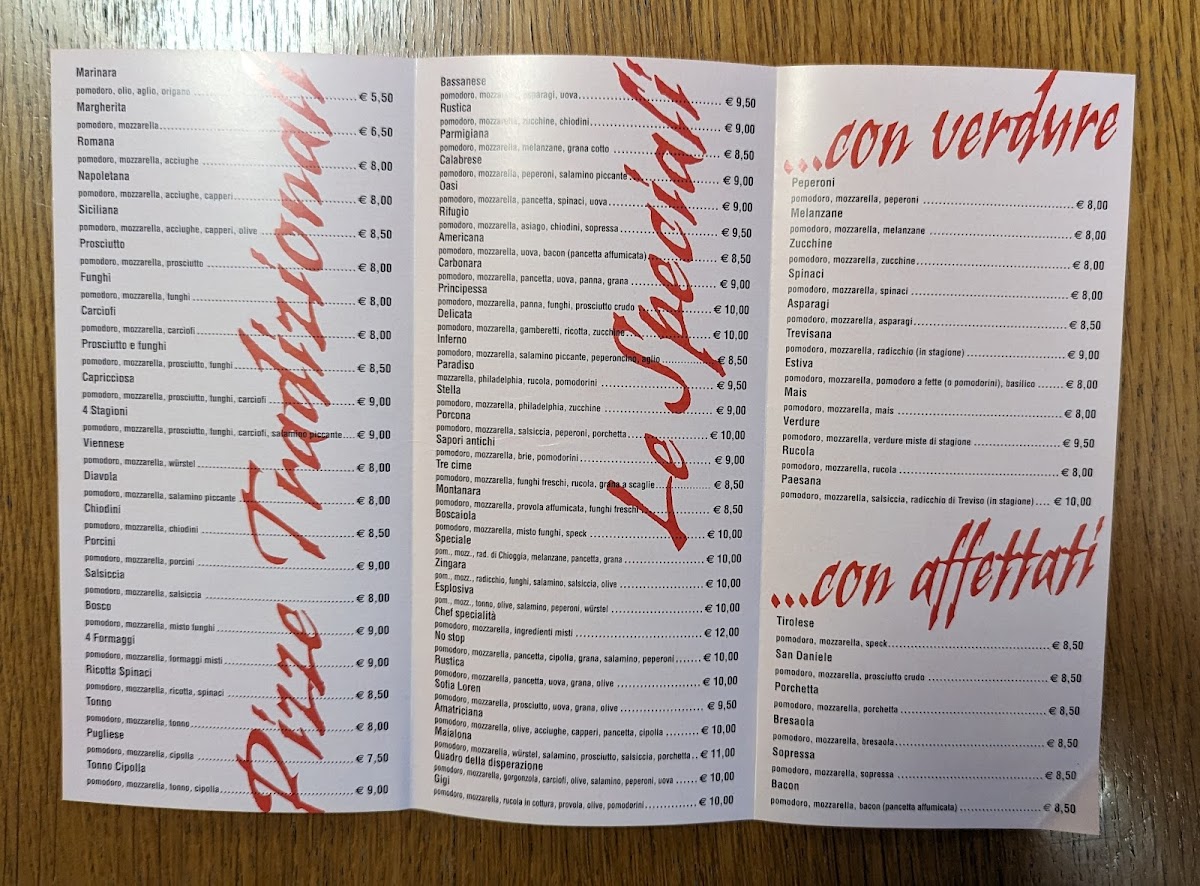 Pizze Tradizionali
Marinara
pomodoro, olio, aglio, origano ........ € 5,50
Margherita
pomodoro, mozzarella ........ € 6,50
Romana
pomodoro, mozzarella, acciughe ........ € 8,00
Napoletana
pomodoro, mozzarella, acciughe, capperi ........ € 8,00
Siciliana
pomodoro, mozzarella, acciughe, capperi, olive ........ € 8,50
Prosciutto
pomodoro, mozzarella, prosciutto ........ € 8,00
Funghi
pomodoro, mozzarella, funghi ........ € 8,00
Carciofi
pomodoro, mozzarella, carciofi ........ € 8,00
Prosciutto e funghi
pomodoro, mozzarella, prosciutto, funghi ........ € 8,50
Capricciosa
pomodoro, mozzarella, prosciutto, funghi, carciofi ........ € 9,00
4 Stagioni
pomodoro, mozzarella, prosciutto, funghi, carciofi, salamino piccante ........ € 9,00
Viennese
pomodoro, mozzarella, würstel ........ € 8,00
Diavola
pomodoro, mozzarella, salamino piccante ........ € 8,00
Chiodini
pomodoro, mozzarella, chiodini ........ € 8,50
Porcini
pomodoro, mozzarella, porcini ........ € 9,00
Salsiccia
pomodoro, mozzarella, salsiccia ........ € 8,00
Bosco
pomodoro, mozzarella, misto funghi ........ € 9,00
4 Formaggi
pomodoro, mozzarella, formaggi misti ........ € 9,00
Ricotta Spinaci
pomodoro, mozzarella, ricotta, spinaci ........ € 8,50
Tonno
pomodoro, mozzarella, tonno ........ € 8,00
Pugliese
pomodoro, mozzarella, cipolla ........ € 7,50
Tonno Cipolla
pomodoro, mozzarella, tonno, cipolla ........ € 9,00
Le Speciali
Bassanese
pomodoro, mozzarella, asparagi, uova ........ € 9,50
Rustica
pomodoro, mozzarella, zucchine, chiodini ........ € 9,00
Parmigiana
pomodoro, mozzarella, melanzane, grana cotto ........ € 8,50
Calabrese
pomodoro, mozzarella, peperoni, salamino piccante ........ € 9,00
Oasi
pomodoro, mozzarella, pancetta, spinaci, uova ........ € 9,00
Rifugio
pomodoro, mozzarella, asiago, chiodini, sopressa ........ € 9,50
Americana
pomodoro, mozzarella, uova, bacon (pancetta affumicata) ........ € 8,50
Carbonara
pomodoro, mozzarella, pancetta, uova, panna, grana ........ € 9,00
Principessa
pomodoro, mozzarella, panna, funghi, prosciutto crudo ........ € 10,00
Delicata
pomodoro, mozzarella, gamberetti, ricotta, zucchine ........ € 10,00
Inferno
pomodoro, mozzarella, salamino piccante, peperoncino, aglio ........ € 8,50
Paradiso
mozzarella, philadelphia, rucola, pomodorini ........ € 9,50
Stella
pomodoro, mozzarella, philadelphia, zucchine ........ € 9,00
Porcona
pomodoro, mozzarella, salsiccia, peperoni, porchetta ........ € 10,00
Sapori antichi
pomodoro, mozzarella, brie, pomodorini ........ € 9,00
Tre cime
pomodoro, mozzarella, funghi freschi, rucola, grana a scaglie ........ € 8,50
Montanara
pomodoro, mozzarella, provola affumicata, funghi freschi ........ € 8,50
Boscaiola
pomodoro, mozzarella, misto funghi, speck ........ € 10,00
Speciale
pom., mozz., rad. di Chioggia, melanzane, pancetta, grana ........ € 10,00
Zingara
pom., mozz., radicchio, funghi, salamino, salsiccia, olive ........ € 10,00
Esplosiva
pom., mozz., tonno, olive, salamino, peperoni, würstel ........ € 10,00
Chef specialità
pomodoro, mozzarella, ingredienti misti ........ € 12,00
No stop
pomodoro, mozzarella, pancetta, cipolla, grana, salamino, peperoni ........ € 10,00
Rustica
pomodoro, mozzarella, pancetta, uova, grana, olive ........ € 10,00
Sofia Loren
pomodoro, mozzarella, prosciutto, uova, grana, olive ........ € 9,50
Amatriciana
pomodoro, mozzarella, olive, acciughe, capperi, pancetta, cipolla ........ € 10,00
Maialona
pomodoro, mozzarella, würstel, salamino, prosciutto, salsiccia, porchetta ........ € 11,00
Quadro della disperazione
pomodoro, mozzarella, gorgonzola, carciofi, olive, salamino, peperoni, uova ........ € 10,00
Gigi
pomodoro, mozzarella, rucola in cottura, provola, olive, pomodorini ........ € 10,00
...con verdure
Peperoni
pomodoro, mozzarella, peperoni ........ € 8,00
Melanzane
pomodoro, mozzarella, melanzane ........ € 8,00
Zucchine
pomodoro, mozzarella, zucchine ........ € 8,00
Spinaci
pomodoro, mozzarella, spinaci ........ € 8,00
Asparagi
pomodoro, mozzarella, asparagi ........ € 8,50
Trevisana
pomodoro, mozzarella, radicchio (in stagione) ........ € 9,00
Estiva
pomodoro, mozzarella, pomodoro a fette (o pomodorini), basilico ........ € 8,00
Mais
pomodoro, mozzarella, mais ........ € 8,00
Verdure
pomodoro, mozzarella, verdure miste di stagione ........ € 9,50
Rucola
pomodoro, mozzarella, rucola ........ € 8,00
Paesana
pomodoro, mozzarella, salsiccia, radicchio di Treviso (in stagione) .... € 10,00
...con affettati
Tirolese
pomodoro, mozzarella, speck ........ € 8,50
San Daniele
pomodoro, mozzarella, prosciutto crudo ........ € 8,50
Porchetta
pomodoro, mozzarella, porchetta ........ € 8,50
Bresaola
pomodoro, mozzarella, bresaola ........ € 8,50
Sopressa
pomodoro, mozzarella, sopressa ........ € 8,50
Bacon
pomodoro, mozzarella, bacon (pancetta affumicata) ........ € 8,50